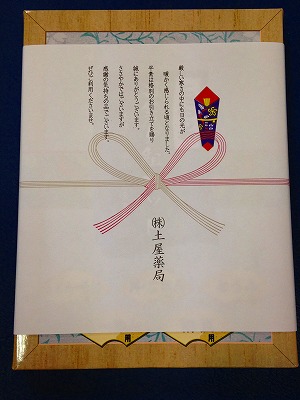 厳しい寒さの中にも日の光が
暖かく感じられる頃となりました。
平素は格別のお引き立てを賜り
誠にありがとうございます。
ささやかではございますが
感謝の気持ちの品でございます。
ぜひご利用くださいませ。
㈱土屋薬局